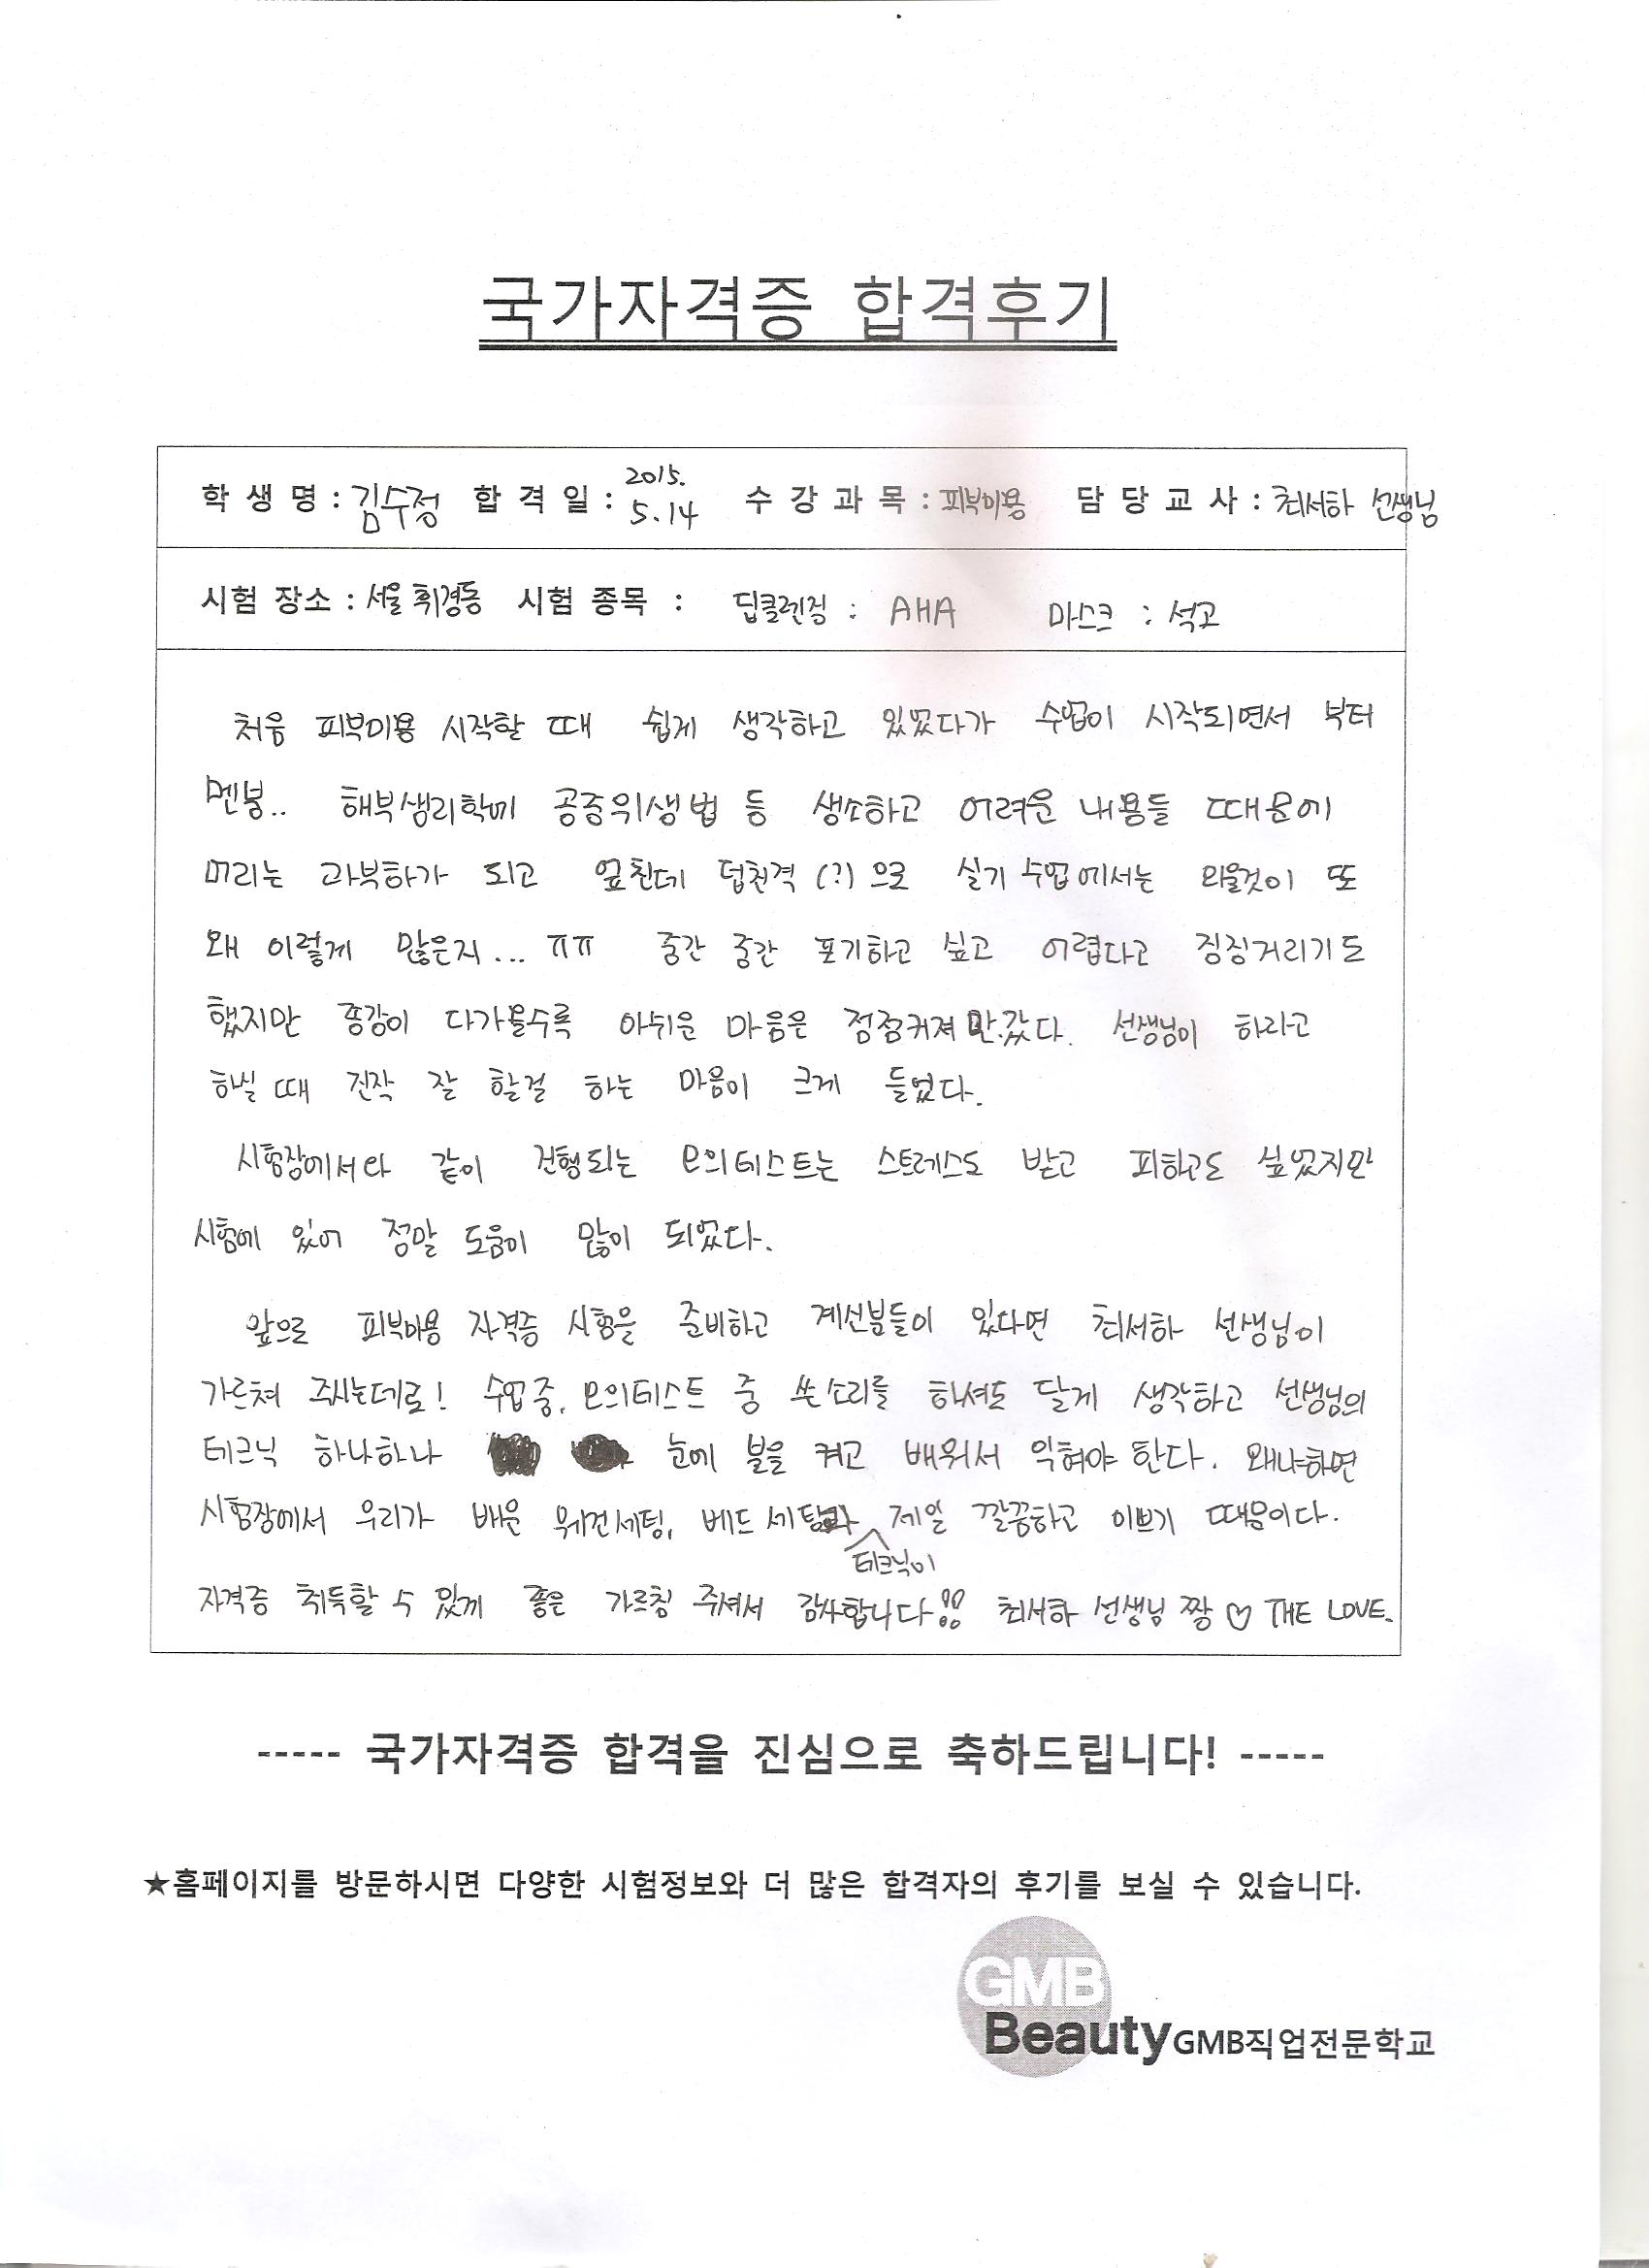 국가자격증 합격후기
학 생 명 : 김수정 합 격 일 : 2015. 5.14 수 강 과 목 : 피부미용 담 당 교 사 : 최서하 선생님
시험 장소 : 서울 휘경동 시험 종목 : 딥클렌징 : AHA 마스크 : 석고
처음 피부미용 시작할 때 쉽게 생각하고 있었다가 수업이 시작되면서 부터
멘붕.. 해부생리학에 공중위생법 등 생소하고 어려운 내용들 때문에
머리는 과부하가 되고 엎친데 덥친격 (?)으로 실기 수업에서는 외울것이 또
왜 이렇게 많은지... ㅠㅠ 중간 중간 포기하고 싶고 어렵다고 징징거리기도
했지만 종강이 다가올수록 아쉬운 마음은 점점커져만.갔다. 선생님이 하라고
하실 때 진작 잘 할걸 하는 마음이 크게 들었다.
시험장에서와 같이 진행되는 모의테스트는 스트레스도 받고 피하고도 싶었지만
시험에 있어 정말 도움이 많이 되었다.
앞으로 피부미용 자격증 시험을 준비하고 계신분들이 있다면 최서하 선생님이
가르쳐 주시는데로! 수업중, 모의테스트 중 쓴소리를 하셔도 달게 생각하고 선생님의
테크닉 하나하나 눈에 불을 켜고 배워서 익혀야 한다. 왜냐하면
시험장에서 우리가 배운 웨건세팅, 베드 세팅과 테크닉이 제일 깔끔하고 이쁘기 때문이다.
자격증 취득할 수 있게 좋은 가르침 주셔서 감사합니다!! 최서하 선생님 짱 ♡ THE LOVE.
----- 국가자격증 합격을 진심으로 축하드립니다! -----
★홈페이지를 방문하시면 다양한 시험정보와 더 많은 합격자의 후기를 보실 수 있습니다.
GMB
Beauty GMB직업전문학교